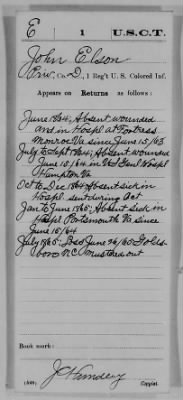 E | 1 | U.S.C.T.
John Elson
Priv, Co. D, 1 Reg't U. S. Colored Inf.
Appears on Returns as follows:
June 1864; Absent wounded
and in Hospl at Fortress
Monroe Va since June 15/65
July to Sept 1864; Absent wounded
June 15/64 in US Genl Hospl
Hampton Va
Oct to Dec 1864 Absent sick in
Hospl. sent during Oct
Jan to June 1865; Absent sick in
Hospl Portsmouth Va since
June 15/64
July 1865: June 26/65 Golds-
boro N.C. Mustered out
Book mark:
Copyist.